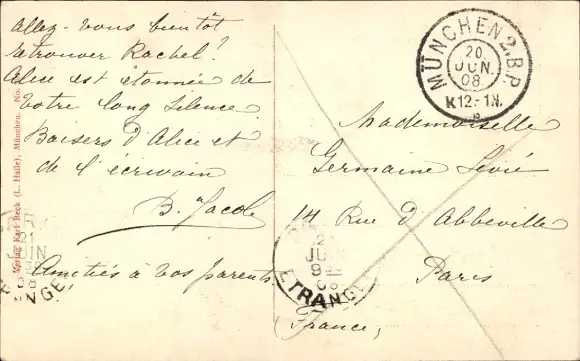 Allez-vous bientôt
retrouver Rachel?
Alice est étonnée de
votre long silence.
Baisers d'Alice et
de l'écrivain
B. Jacob
Amitiés à vos parents
Verlag Karl Beck (L. Halle), München. No.
MÜNCHEN 2. B.P.
20
JUN.
08
K 12-1N.
Mademoiselle
Germaine Lévié
14 Rue d'Abbeville
Paris
(France)
21
JUIN
08
ETRANGE